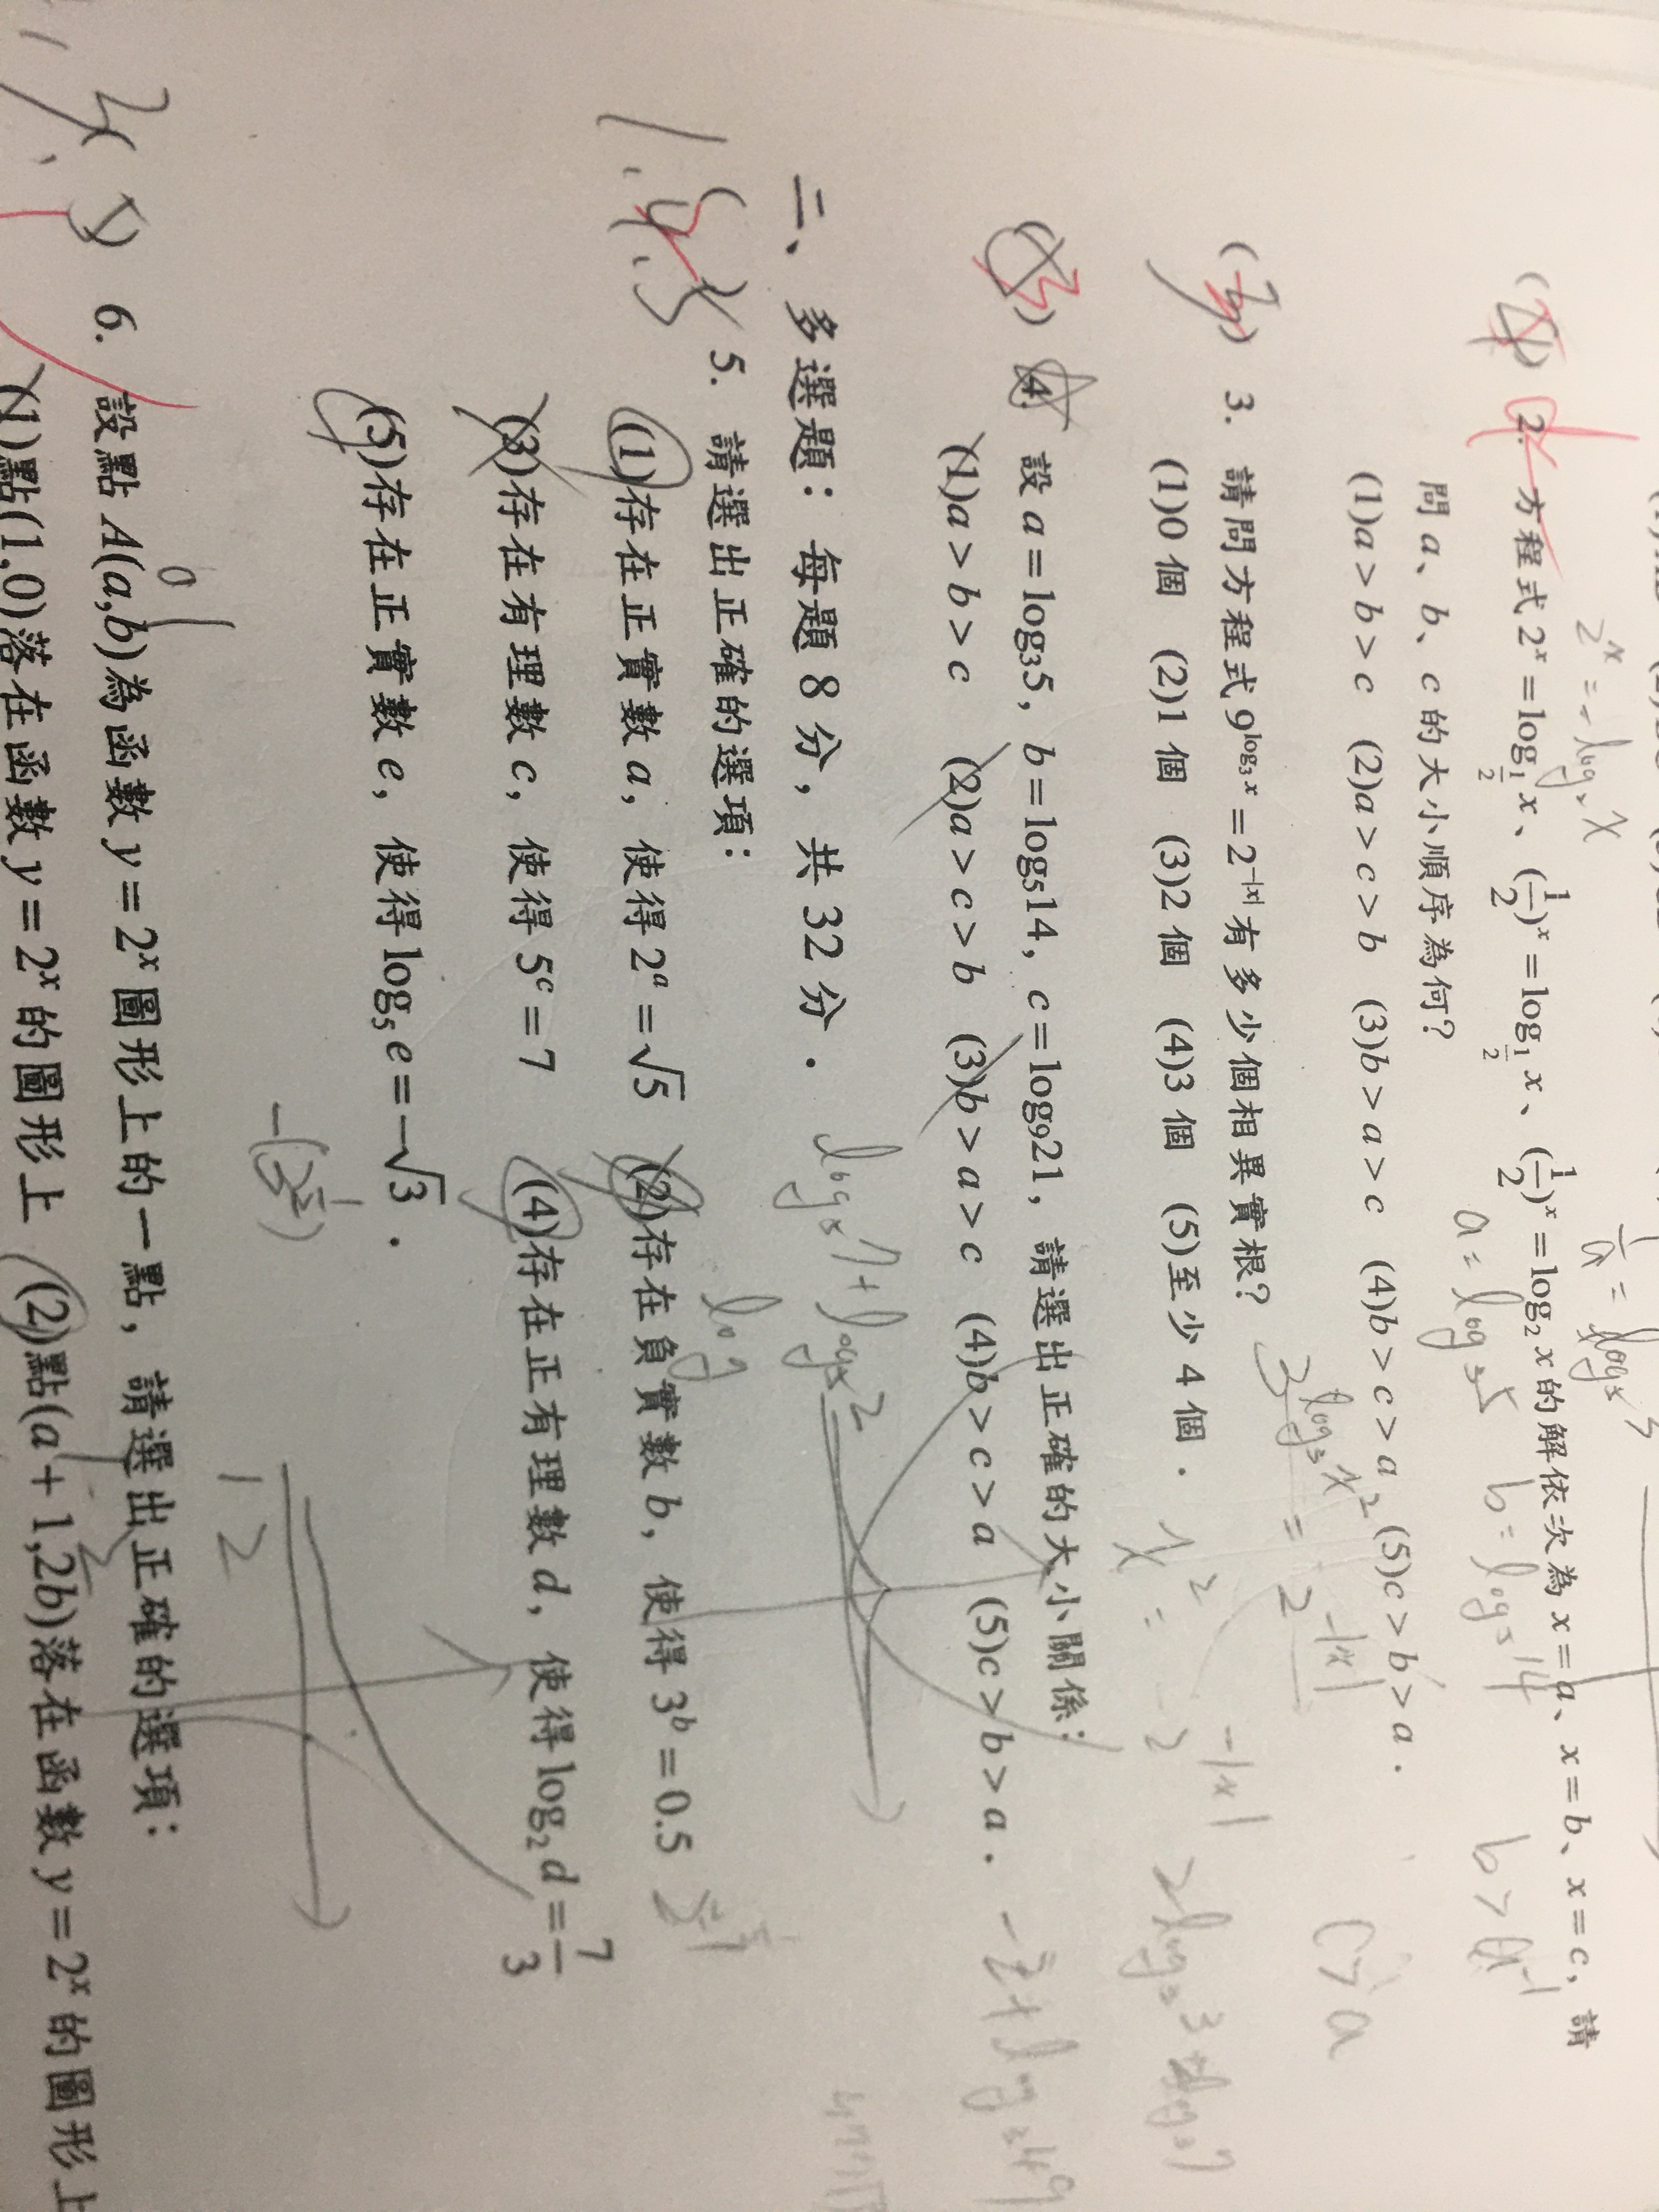 2. 方程式 2^x = log_{1/2} x、(1/2)^x = log_{1/2} x、(1/2)^x = log_2 x 的解依次為 x = a、x = b、x = c，請
問 a、b、c 的大小順序為何？
(1)a > b > c (2)a > c > b (3)b > a > c (4)b > c > a (5)c > b > a .
3. 請問方程式 9^{log_3 x} = 2^{-|x|} 有多少個相異實根？
(1)0 個 (2)1 個 (3)2 個 (4)3 個 (5)至少 4 個 .
4. 設 a = log_3 5，b = log_5 14，c = log_9 21，請選出正確的大小關係：
(1)a > b > c (2)a > c > b (3)b > a > c (4)b > c > a (5)c > b > a .
二、多選題：每題 8 分，共 32 分 .
1.4.5
5. 請選出正確的選項：
(1)存在正實數 a，使得 2^a = √5 (2)存在負實數 b，使得 3^b = 0.5
(3)存在有理數 c，使得 5^c = 7 (4)存在正有理數 d，使得 log_2 d = 7/3
(5)存在正實數 e，使得 log_5 e = -√3 .
6. 設點 A(a,b) 為函數 y = 2^x 圖形上的一點，請選出正確的選項：
(1)點(1,0)落在函數 y = 2^x 的圖形上 (2)點(a + 1,2b)落在函數 y = 2^x 的圖形上
2^x = -log_2 x
a = log_3 5
b = log_5 14
3^{log_3 x^2} = 2^{-|x|}
x^2 = 2^{-|x|}
c > a
log_5 7 + log_5 2
log